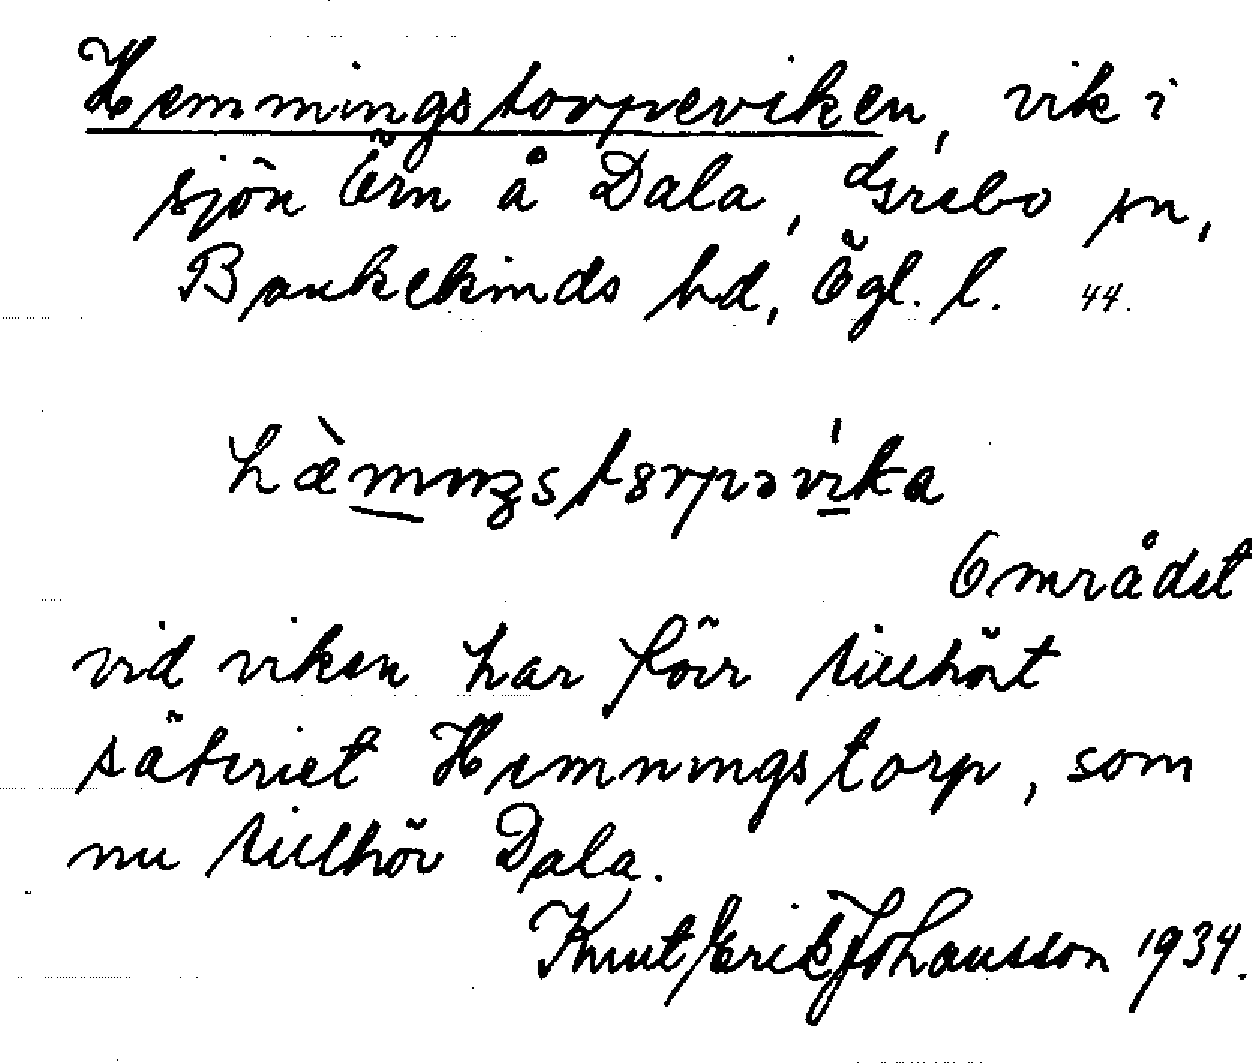 Hemmingstorpeviken, vik i
sjön Örn å Dala, Grebo sn,
Bankekinds hd, Ögl. l. 44.
hæ̀mıŋstɔrpəvíka
Området
vid viken har förr tillhört
säteriet Hemningstorp, som
nu tillhör Dala.
Knut Erik Johansson 1934.